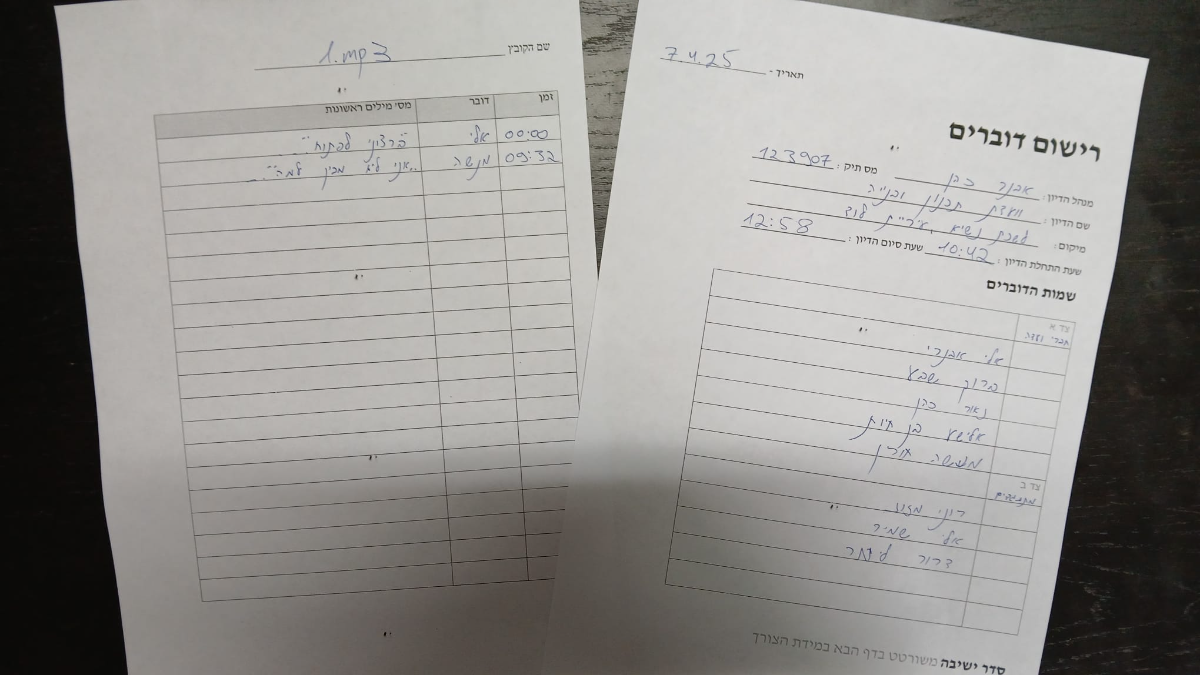 תאריך - 7.4.25
רישום דוברים
מס תיק : 123907
מנהל הדיון : אבנר כהן
שם הדיון : וועדת תכנון ובנייה
מיקום : לשכת נשיא עיריית לוד
שעת התחלת הדיון : 10:42 שעת סיום הדיון : 12:58
שמות הדוברים
צד א
חברי ועדה
אלי אבנרי
ברוך שבע
נאור כהן
אלישע בן חיות
מנשה אורן
צד ב
רוני מזוז
אלי שמיר
דרור ליבר
סדר ישיבה משורטט בדף הבא במידת הצורך
שם הקובץ 1.mp3
זמן דובר מס' מילים ראשונות
00:00 אלי "ברצוני לפתוח"
09:32 מנשה "אני לא מבין למה"